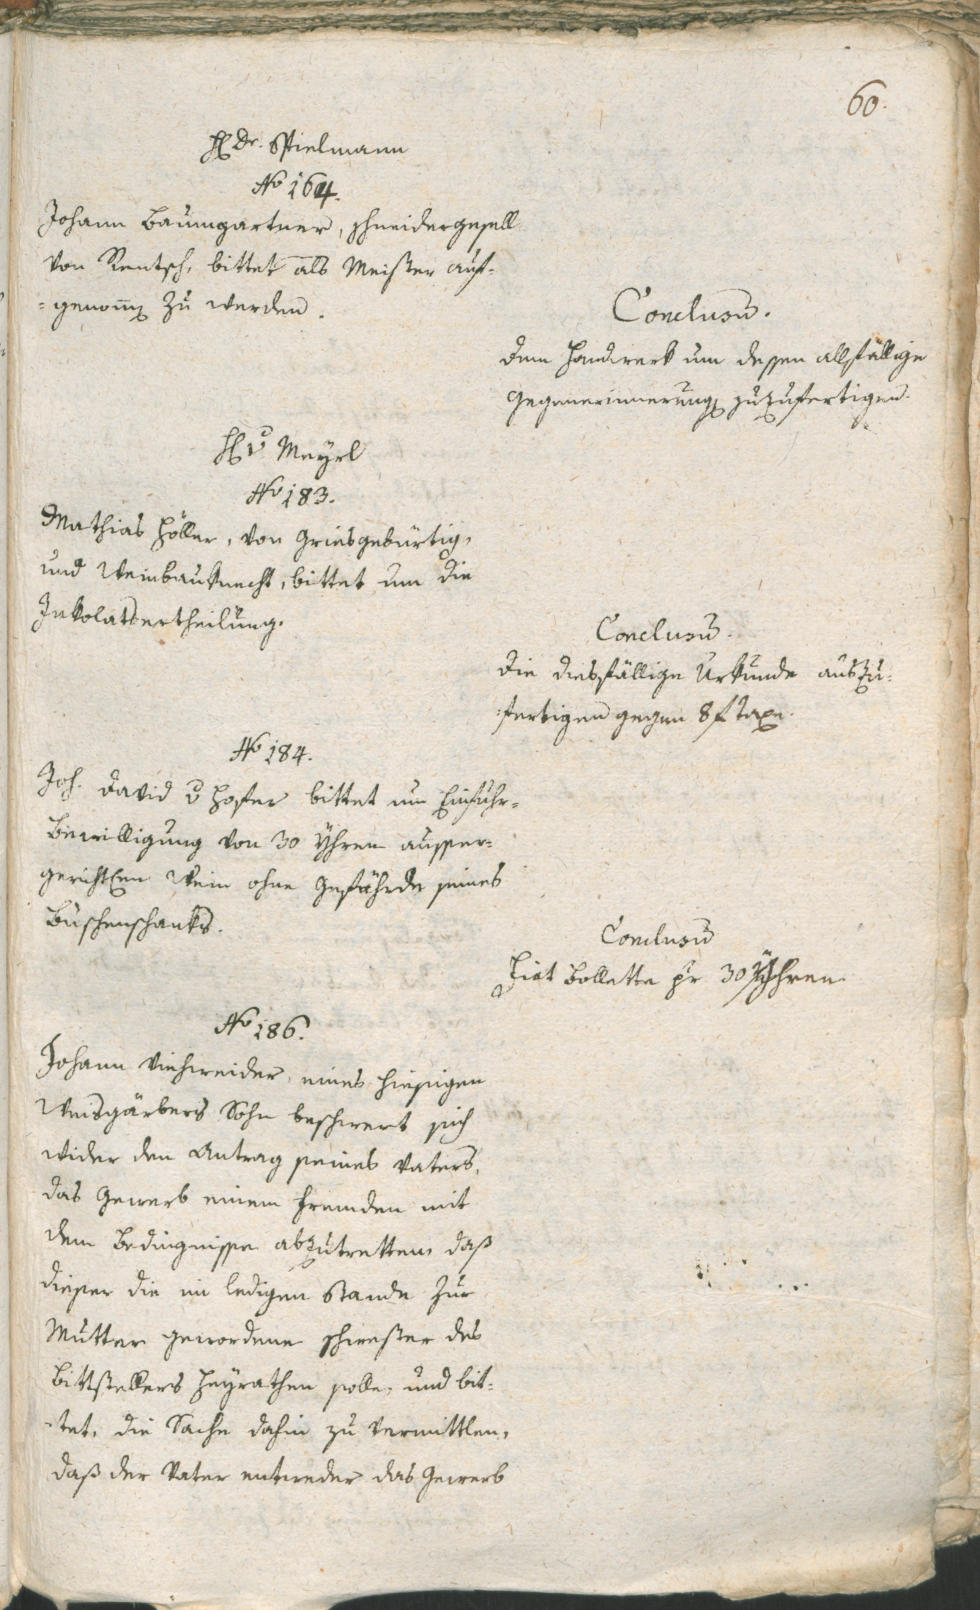 60.
H Dr. Spielmann
No 164.
Johann Baumgartner, schneidergesell
von Rentsch, bittet als Meister auf-
-genom̄en zu werden.
Conclusū.
dem Handwerk um dessen allfällige
Gegenerinnerung zuzufertigen.
H v Meyrl
No 183.
Mathias Höller, von Griesgebürtig,
und Weinbauknecht, bittet um die
Inkolatsertheilung.
Conclusū.
die diesfällige Urkunde auszu-
fertigen gegen 8 f taxe.
No 184.
Joh. david v Hofer bittet um Einfuhr-
bewilligung von 30 Yhren ausser-
gerichtlen Wein ohne Gefährde seines
Buschenschanks.
Conclusū
Fiat Bollette pr 30 Yhren
No 186.
Johann Viehweider, eines hiesigen
Weisgärbers Sohn beschwert sich
wider den Antrag seines Vaters,
das Gewerb einem Fremden mit
dem Bedingnisse abzutretten, daß
dieser die im ledigen Stande zur
Mutter gewordene schwester des
Bittstellers heyrathen solle, und bit-
-tet, die Sache dahin zu vermittlen,
daß der Vater entweder das Gewerb